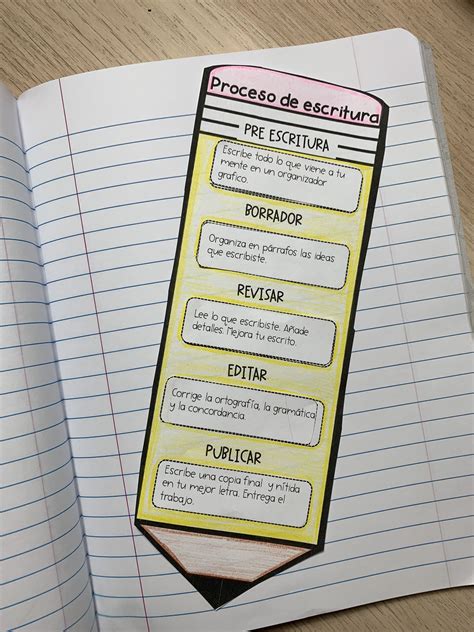 Proceso de escritura
PRE ESCRITURA
Escribe todo lo que viene a tu
mente en un organizador
grafico.
BORRADOR
Organiza en párrafos las ideas
que escribiste.
REVISAR
Lee lo que escribiste. Añade
detalles. Mejora tu escrito.
EDITAR
Corrige la ortografía, la gramática
y la concordancia.
PUBLICAR
Escribe una copia final y nítida
en tu mejor letra. Entrega el
trabajo.